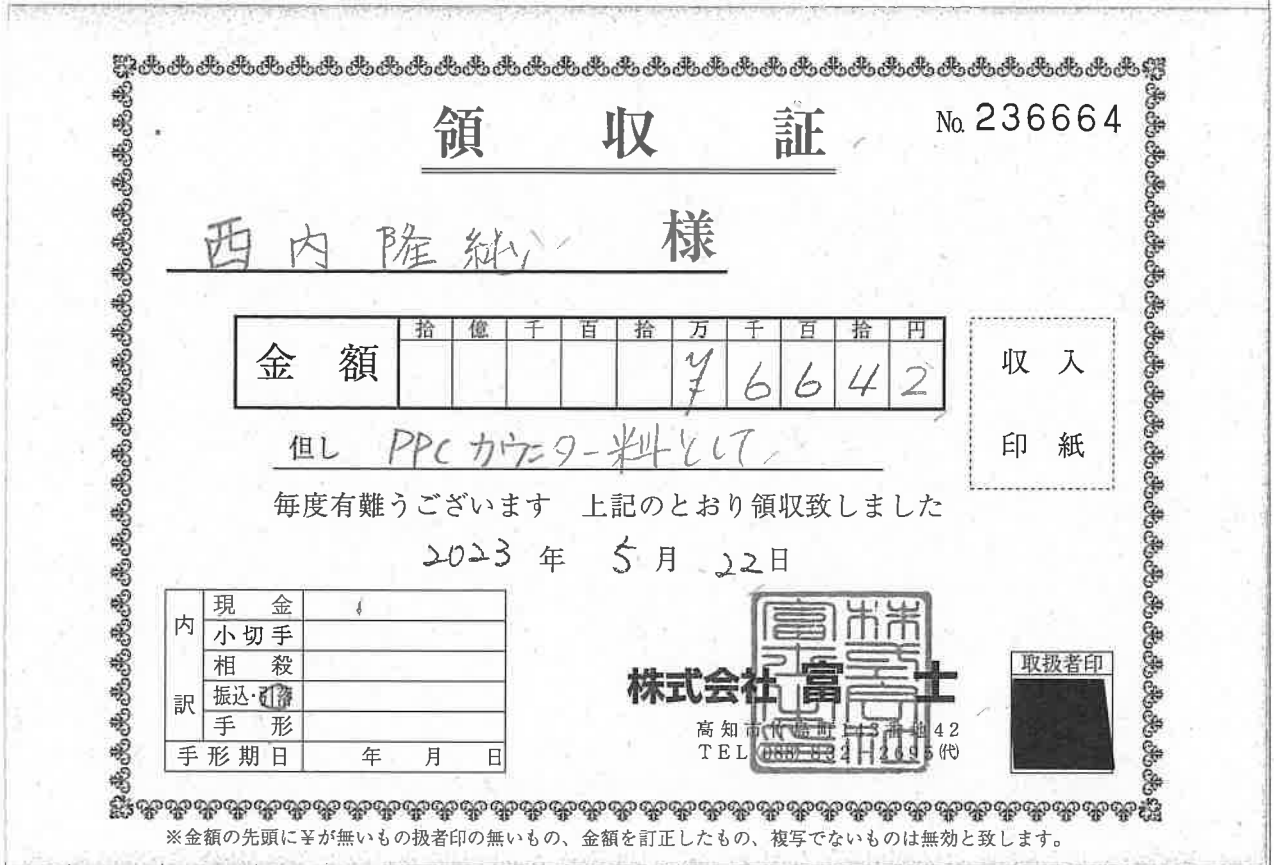 領収証
No. 236664
西内隆 様
金額
拾 億 千 百 拾 万 千 百 拾 円
¥ 6 6 4 2
収入
印紙
但し PPCカウンター料として
毎度有難うございます 上記のとおり領収致しました
2023年 5月 22日
内訳
現金
小切手
相殺
振込・引落
手形
手形期日 年 月 日
株式会社 富士
高知市竹島町143番地42
TEL (088) 832-2695(代)
取扱者印
※金額の先頭に¥が無いもの扱者印の無いもの、金額を訂正したもの、複写でないものは無効と致します。